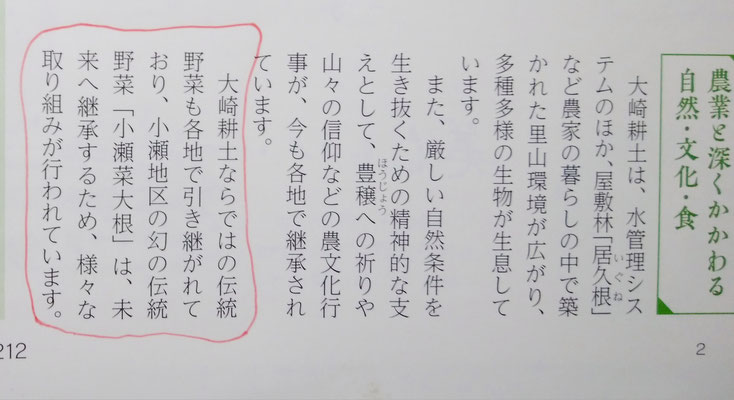 農業と深くかかわる
自然・文化・食
大崎耕土は、水管理シス
テムのほか、屋敷林「居久根」
いぐね
など農家の暮らしの中で築
かれた里山環境が広がり、
多種多様の生物が生息して
います。
また、厳しい自然条件を
生き抜くための精神的な支
えとして、豊穣への祈りや
ほうじょう
山々の信仰などの農文化行
事が、今も各地で継承され
ています。
大崎耕土ならではの伝統
野菜も各地で引き継がれて
おり、小瀬地区の幻の伝統
野菜「小瀬菜大根」は、未
来へ継承するため、様々な
取り組みが行われています。
2
212